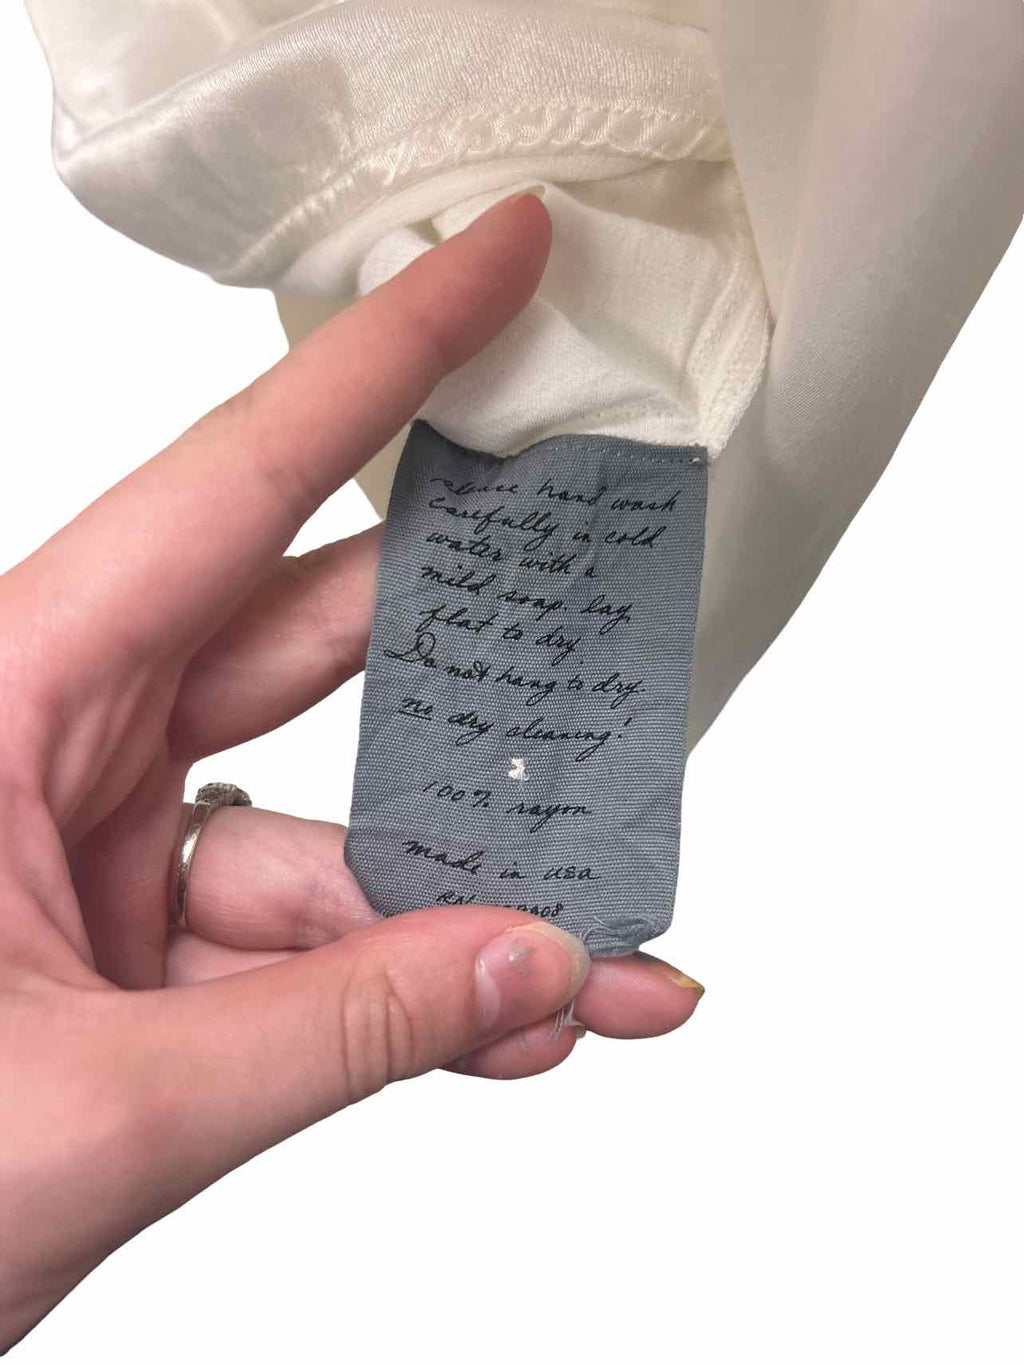 please hand wash
carefully in cold
water with a
mild soap. lay
flat to dry.
Do not hang to dry.
no dry cleaning!
100% rayon
made in usa
RN